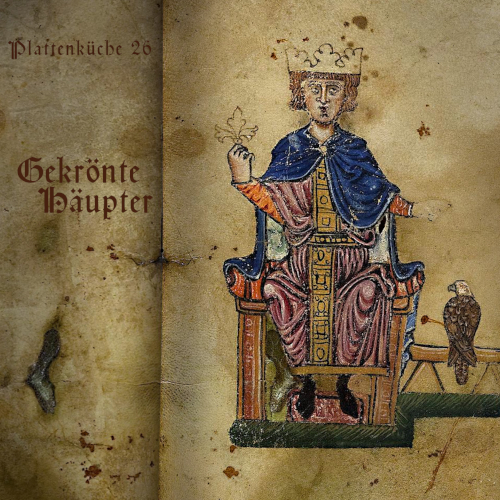 Plattenküche 26
Gekrönte
Häupter